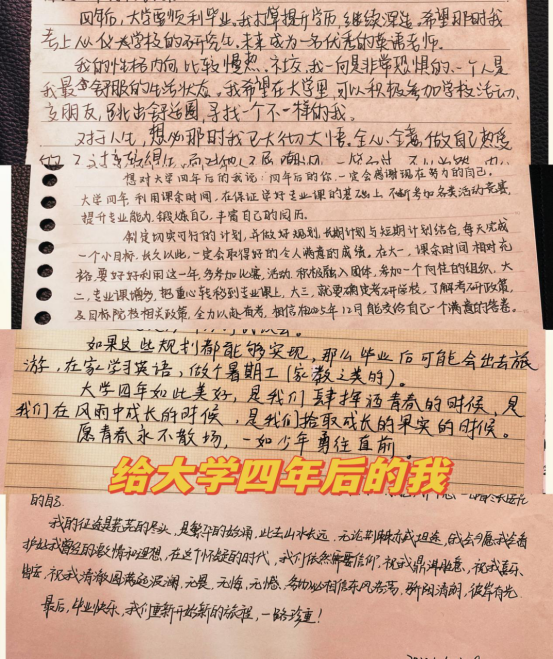 四年后,大学要顺利毕业。我打算提升学历,继续深造。希望那时我
考上从化大学校的研究生,未来成为一名优秀的英语老师。
我的性格内向,比较慢热。社交我一向是非常恐惧的,一个人是
我最舒服的生活状态。我希望在大学里,可以积极参加学校活动,
交朋友,跳出舒适圈,寻找一个不一样的我。
对于人生,想必那时我已大彻大悟。全心全意,做自己热爱
想对大学四年后的我说:四年后的你,一定会感谢现在努力的自己。
大学四年利用课余时间,在保证学好专业课的基础上,不断参加各类活动竞赛,
提升专业能力,锻炼自己,丰富自己的阅历。
制定切实可行的计划,并做好规划,长期计划与短期计划结合,每天完成
一个小目标,长久以此,一定会取得好的令人满意的成绩。在大一,课余时间相对充
裕,要好好利用这一年,多参加比赛,活动,积极融入团体,参加一个向往的组织。大
二,专业课增多,把重心转移到专业课上。大三,就要确定考研学校,了解考研政策,
及目标院校相关政策,全力以赴备考,相信相四年12月能交给自己一个满意的答卷。
如果这些规划都能够实现,那么毕业后可能会出去旅
游,在家学习英语,做个暑期工(家教之类的)。
大学四年如此美好,是我们肆挥洒青春的时候,是
我们在风雨中成长的时候,是我们拾取成长的果实的时候。
愿青春永不散场,一如少年勇往直前。
给大学四年后的我
的自己
我的征途是荒芜的尽头,是繁华的始端,此去山水长远,无论荆棘亦或坦途,
护好我曾经的激情和理想,在这个怀疑的时代,我们依然需要信仰,祝我
祝我清澈圆满起波澜,无畏,无悔,无憾,务必相信东风浩荡,骄阳清朗,彼岸有光。
最后,毕业快乐,我们重新开始新的旅程,一路珍重!